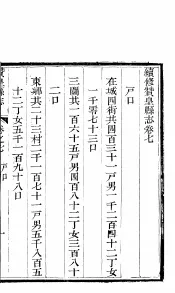 續修贊皇縣志卷七
戶口
在城四街共四百三十一戶男一千二百四十二丁女
一千零七十三口
三關共一百六十五戶男四百八十二丁女三百八十
二口
東鄉共二十三村二千一百七十一戶男五千八百五
十二丁女五千一百九十八口